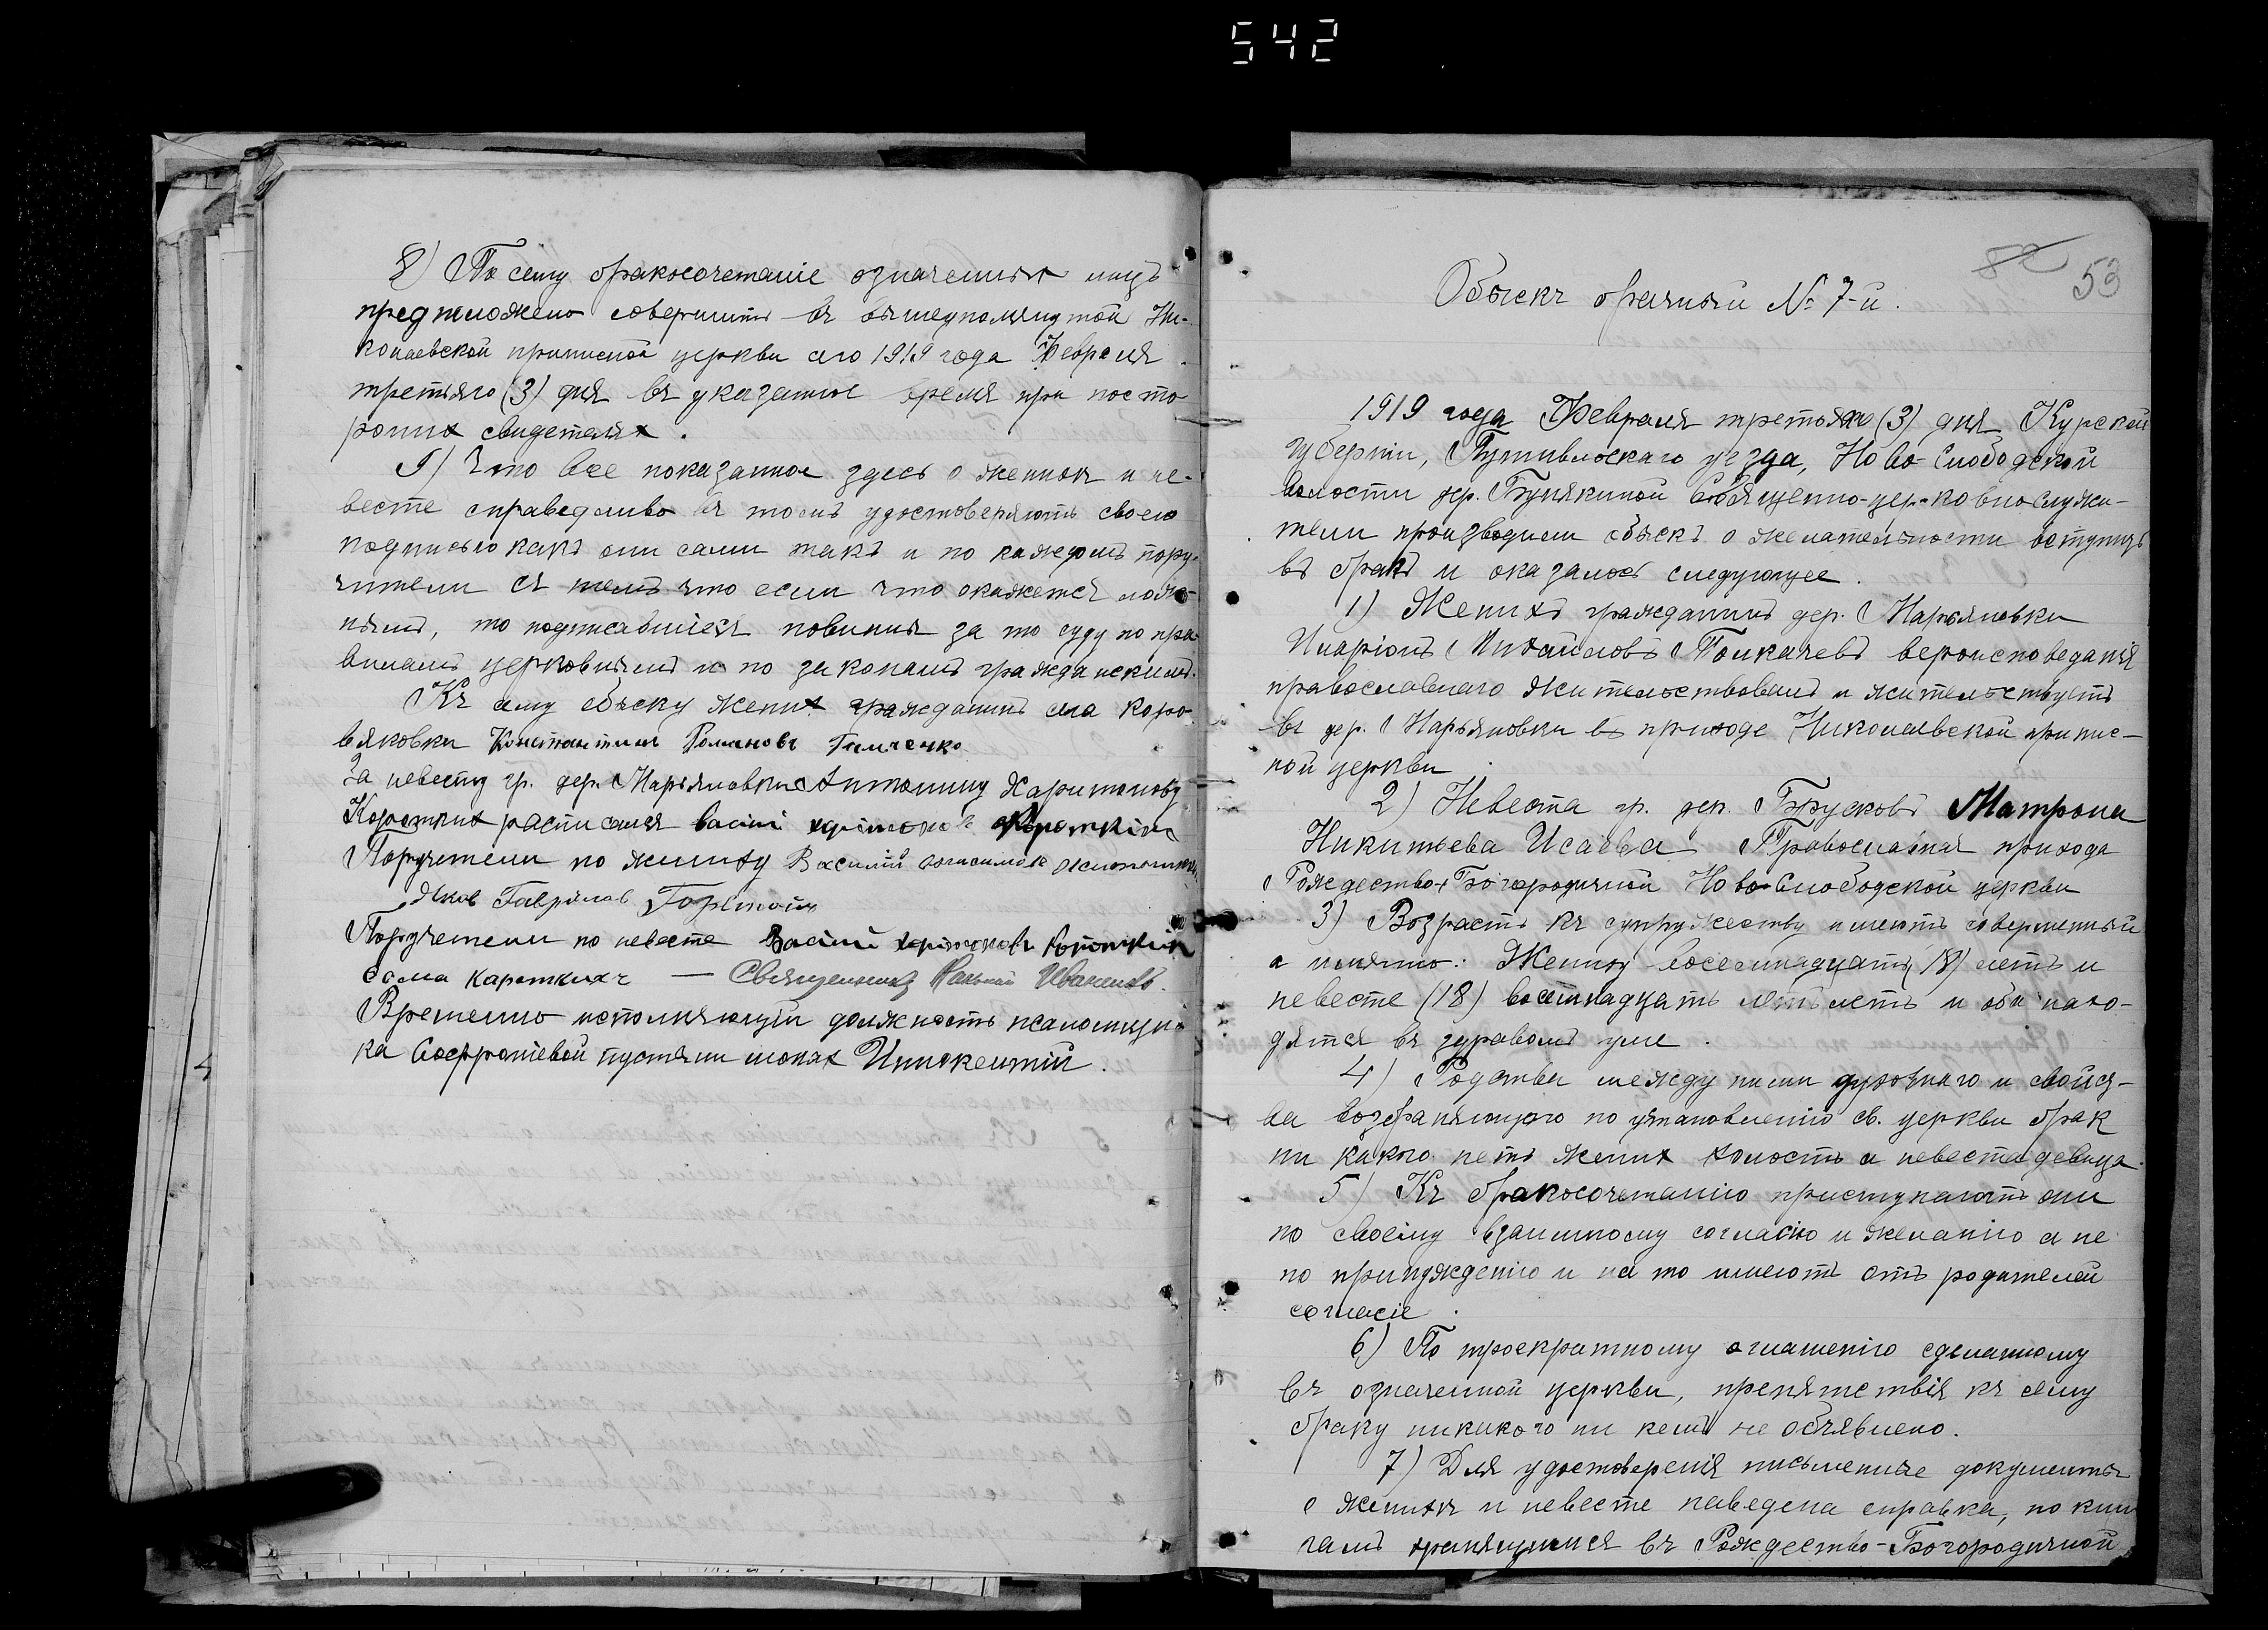 542
8) По сему бракосочетаніе означенных лицъ
предположено совершить въ вышеупомянутой Ни-
колаевской приписной церкви сего 1919 года Февраля
третьяго (3) дня въ указанное время при посто
ронних свидетелях.
9) Что все показанное здесь о женихъ и не-
весте справедливо въ томъ удостоверяютъ своею
подписью какъ они сами такъ и по каждомъ пору-
чители съ темъ что если что окажется лож-
нымъ, то подписавшіеся повинны за то суду по пра-
виламъ церковнымъ и по законамъ гражданскимъ.
Къ сему обыску жених гражданинъ села Коро-
вяковки Константинъ Романовъ
За невесту гр. дер. Марьяновки Антонину Харитонову
Коротких расписался васіи Короткіхъ
Поручетели по жениху Василій
Яков Гаврилов
Поручетели по невесте Васіи
сома кароткихъ — Священникъ Иванов.
Временно исполняющій должность псаломщи-
ка Софроніевой пустыни монах Инокентій.
52 53
Обыскъ брачный № 7-й.
1919 года Февраля третьяго (3) дня Курской
губерніи, Путивльскаго уезда, Ново-Слободской
волости дер. Бунякиной Священно-церковнослужи-
тели производили обыскъ о желательности вступить
въ бракъ и оказалось следующее.
1) Женихъ гражданинъ дер. Марьяновки
Иларіонъ Михайловъ Толкачевъ вероисповеданія
православнаго жительствовалъ и жительствуетъ
въ дер. Марьяновки в приходе Николаевской припис-
ной церкви
2) Невеста гр. дер. Брусковъ Матрона
Никитьева Исаева Православная прихода
Рождество-Богородичной Ново-Слободской церкви
3) Возрастъ къ супружеству имеютъ совершенный
а именно: Жениху восемнадцать (18) летъ и
невесте (18) восемнадцать летъ летъ и оба нахо-
дятся въ здравомъ уме.
4) Родства между ними духовнаго и свойст-
ва возбраняющаго по установленію св. церкви брак
ни какого нетъ жених холостъ а невеста девица
5) Къ бракосочетанію приступаютъ они
по своему взаимному согласію и желанію а не
по принужденію и на то имеютъ отъ родителей
согласіе.
6) По троекратному оглашенію сделанному
въ означенной церкви, препятствія къ сему
браку никакого ни кемъ не объявлено.
7) Для удостоверенія письменные документы
о женихъ и невесте наведена справка, по кни
гамъ хранящимся въ Рождество-Богородичной